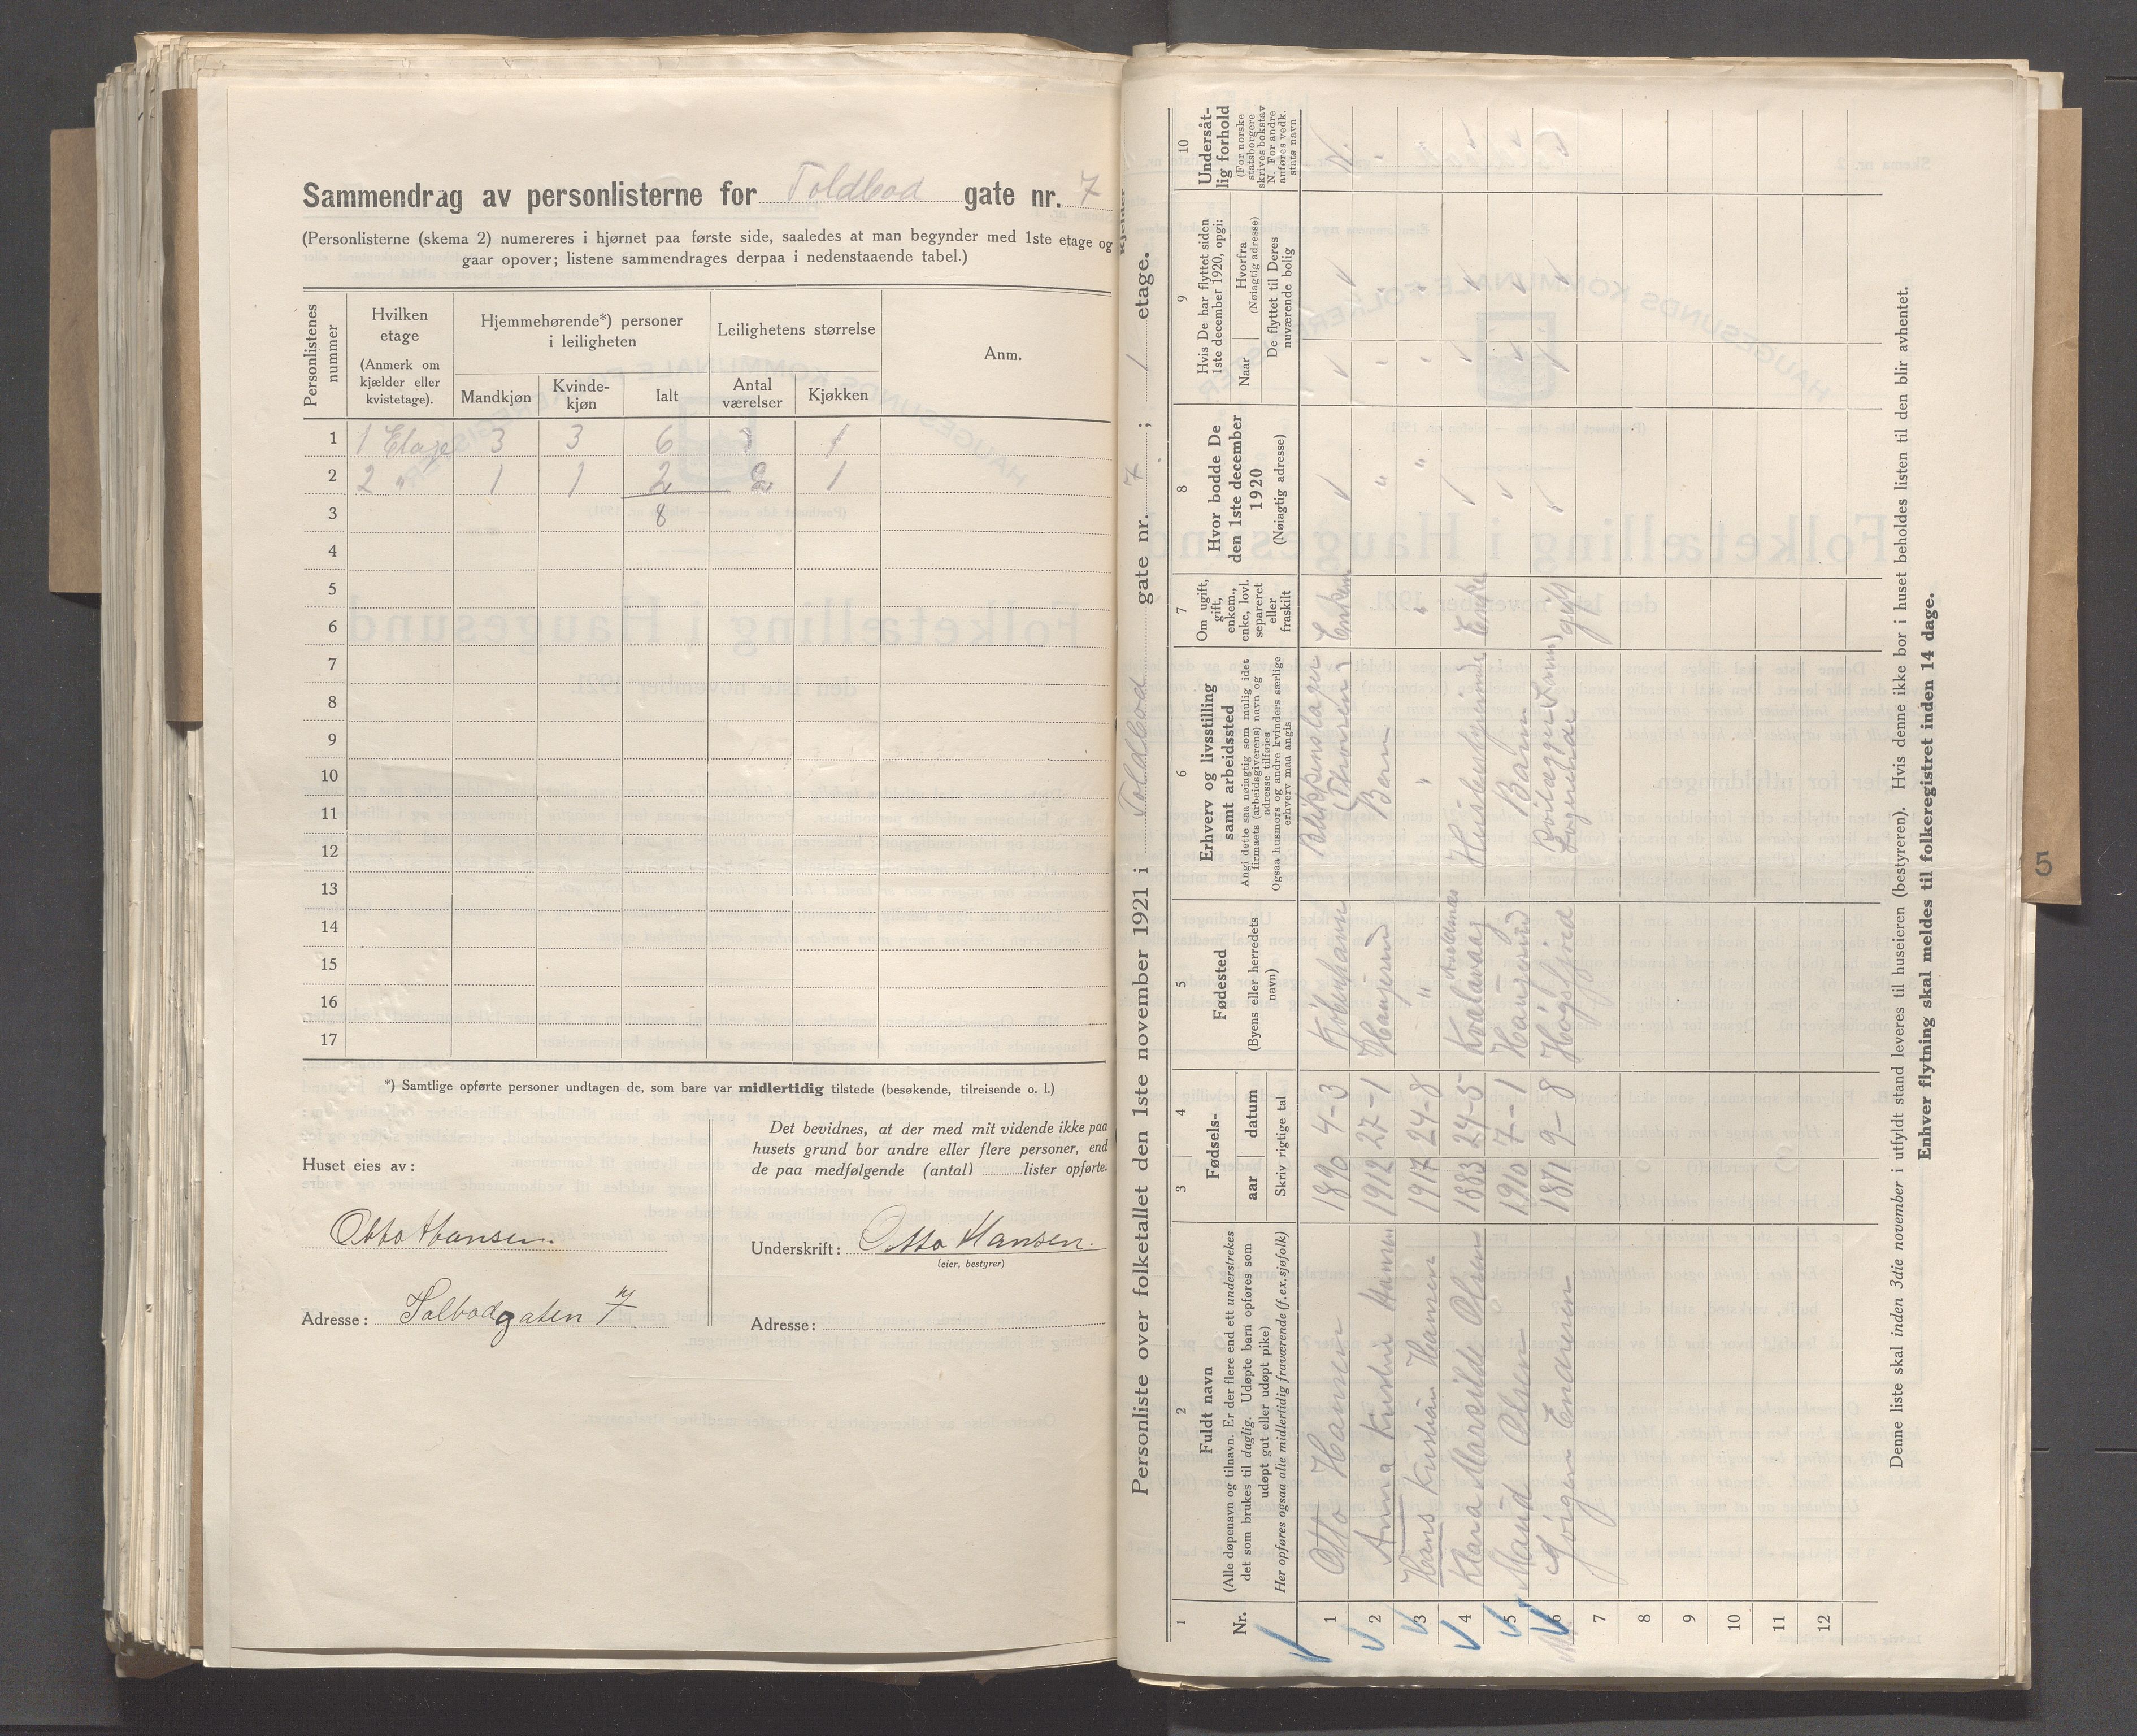 Sammendrag av personlisterne for Toldbod gate nr. 7
(Personlisterne (skema 2) numereres i hjørnet paa første side, saaledes at man begynder med 1ste etage og
gaar opover; listene sammendrages derpaa i nedenstaaende tabel.)
Personlistenes nummer
Hvilken etage (Anmerk om kjælder eller kvistetage).
Hjemmehørende*) personer i leiligheten
Leilighetens størrelse
Anm.
Mandkjøn Kvinde-kjøn Ialt Antal værelser Kjøkken
1 1 Etage 3 3 6 1
2 2 " 1 1 2 2 1
3 8
4
5
6
7
8
9
10
11
12
13
14
15
16
17
*) Samtlige opførte personer undtagen de, som bare var midlertidig tilstede (besøkende, tilreisende o. l.)
Huset eies av:
Otto Hansen.
Adresse: Tolbodgaten 7
Det bevidnes, at der med mit vidende ikke paa
husets grund bor andre eller flere personer, end
de paa medfølgende (antal) lister opførte.
Underskrift: Otto Hansen.
(eier, bestyrer)
Adresse:
Personliste over folketallet den 1ste november 1921 i Toldbod gate nr. 7 ; 1 etage.
1 2 3 4 5 6 7 8 9 10
Nr.
Fuldt navn
(Alle døpenavn og tilnavn. Er der flere end ett understrekes
det som brukes til daglig. Udøpte barn opføres som
udøpt gut eller udøpt pike)
Her opføres ogsaa alle midlertidig fraværende (f.ex. sjøfolk)
Fødsels-
aar datum
Skriv rigtige tal
Fødested
(Byens eller herredets
navn)
Erhverv og livsstilling
samt arbeidssted
Angi dette saa nøiagtig som mulig idet
firmaets (arbeidsgiverens) navn og
adresse tilføies
Ogsaa husmors og andre kvinders særlige
erhverv maa angis
Om ugift,
gift,
enkem.,
enke, lovl.
separeret
eller
fraskilt
Hvor bodde De
den 1ste december
1920
(Nøiagtig adresse)
Hvis De har flyttet siden
1ste december 1920, opgi:
Naar
Hvorfra
(Nøiagtig adresse)
De flyttet til Deres
nuværende bolig
Undersåt-
lig forhold
(For norske
statsborgere
skrives bokstav
N. For andre
anføres vedk.
stats navn
1 Otto Hansen 1890 4-3 København Blikkenslager Enkem N.
2 Anna Kristine Hansen 1912 27-1 Haugesund Barn "
3 Hans Kristian Hansen 1917 24-8 " " " "
4 Klara Marselide Olsen 1883 24-5 Kvalavaag Husbestyrerinde Enke "
5 Maud Olsen 1910 7-1 Haugesund Barn "
6 Jørgen Endresen 1871 9-8 Høgsfjord Logerende gift "
7
8
9
10
11
12
Denne liste skal inden 3die november i utfyldt stand leveres til huseieren (bestyreren). Hvis denne ikke bor i huset beholdes listen til den blir avhentet.
Enhver flytning skal meldes til folkeregistret inden 14 dage.
5